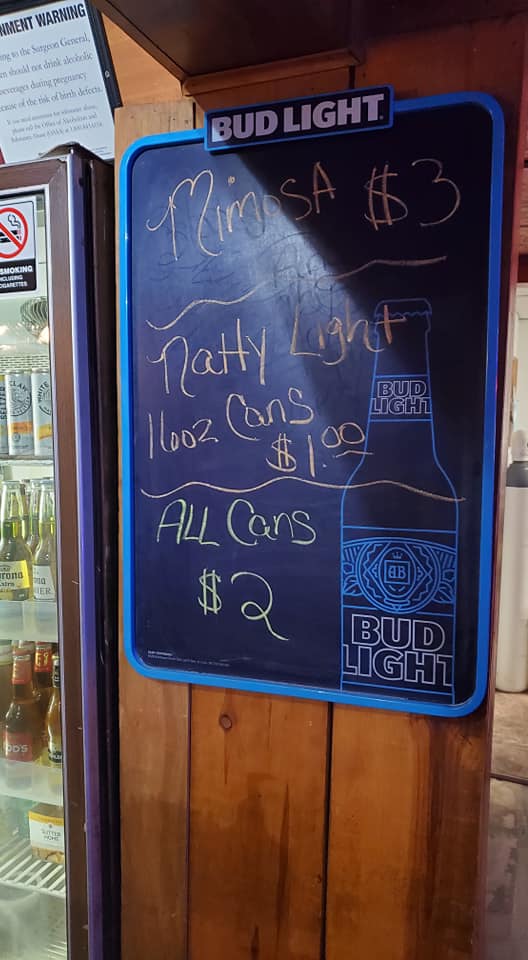 NMENT WARNING
ing to the Surgeon General,
en should not drink alcoholic
beverages during pregnancy
cause of the risk of birth defects.
SMOKING
INCLUDING
CIGARETTES
BUD LIGHT
Mimosa $3
Natty Light
16oz Cans
$1.00
ALL Cans
$2
BUD
LIGHT
BB
BUD
LIGHT
SELTZER
CLAW
WHITE
orona
Extra
IER
OD'S
SUTTER
HOME